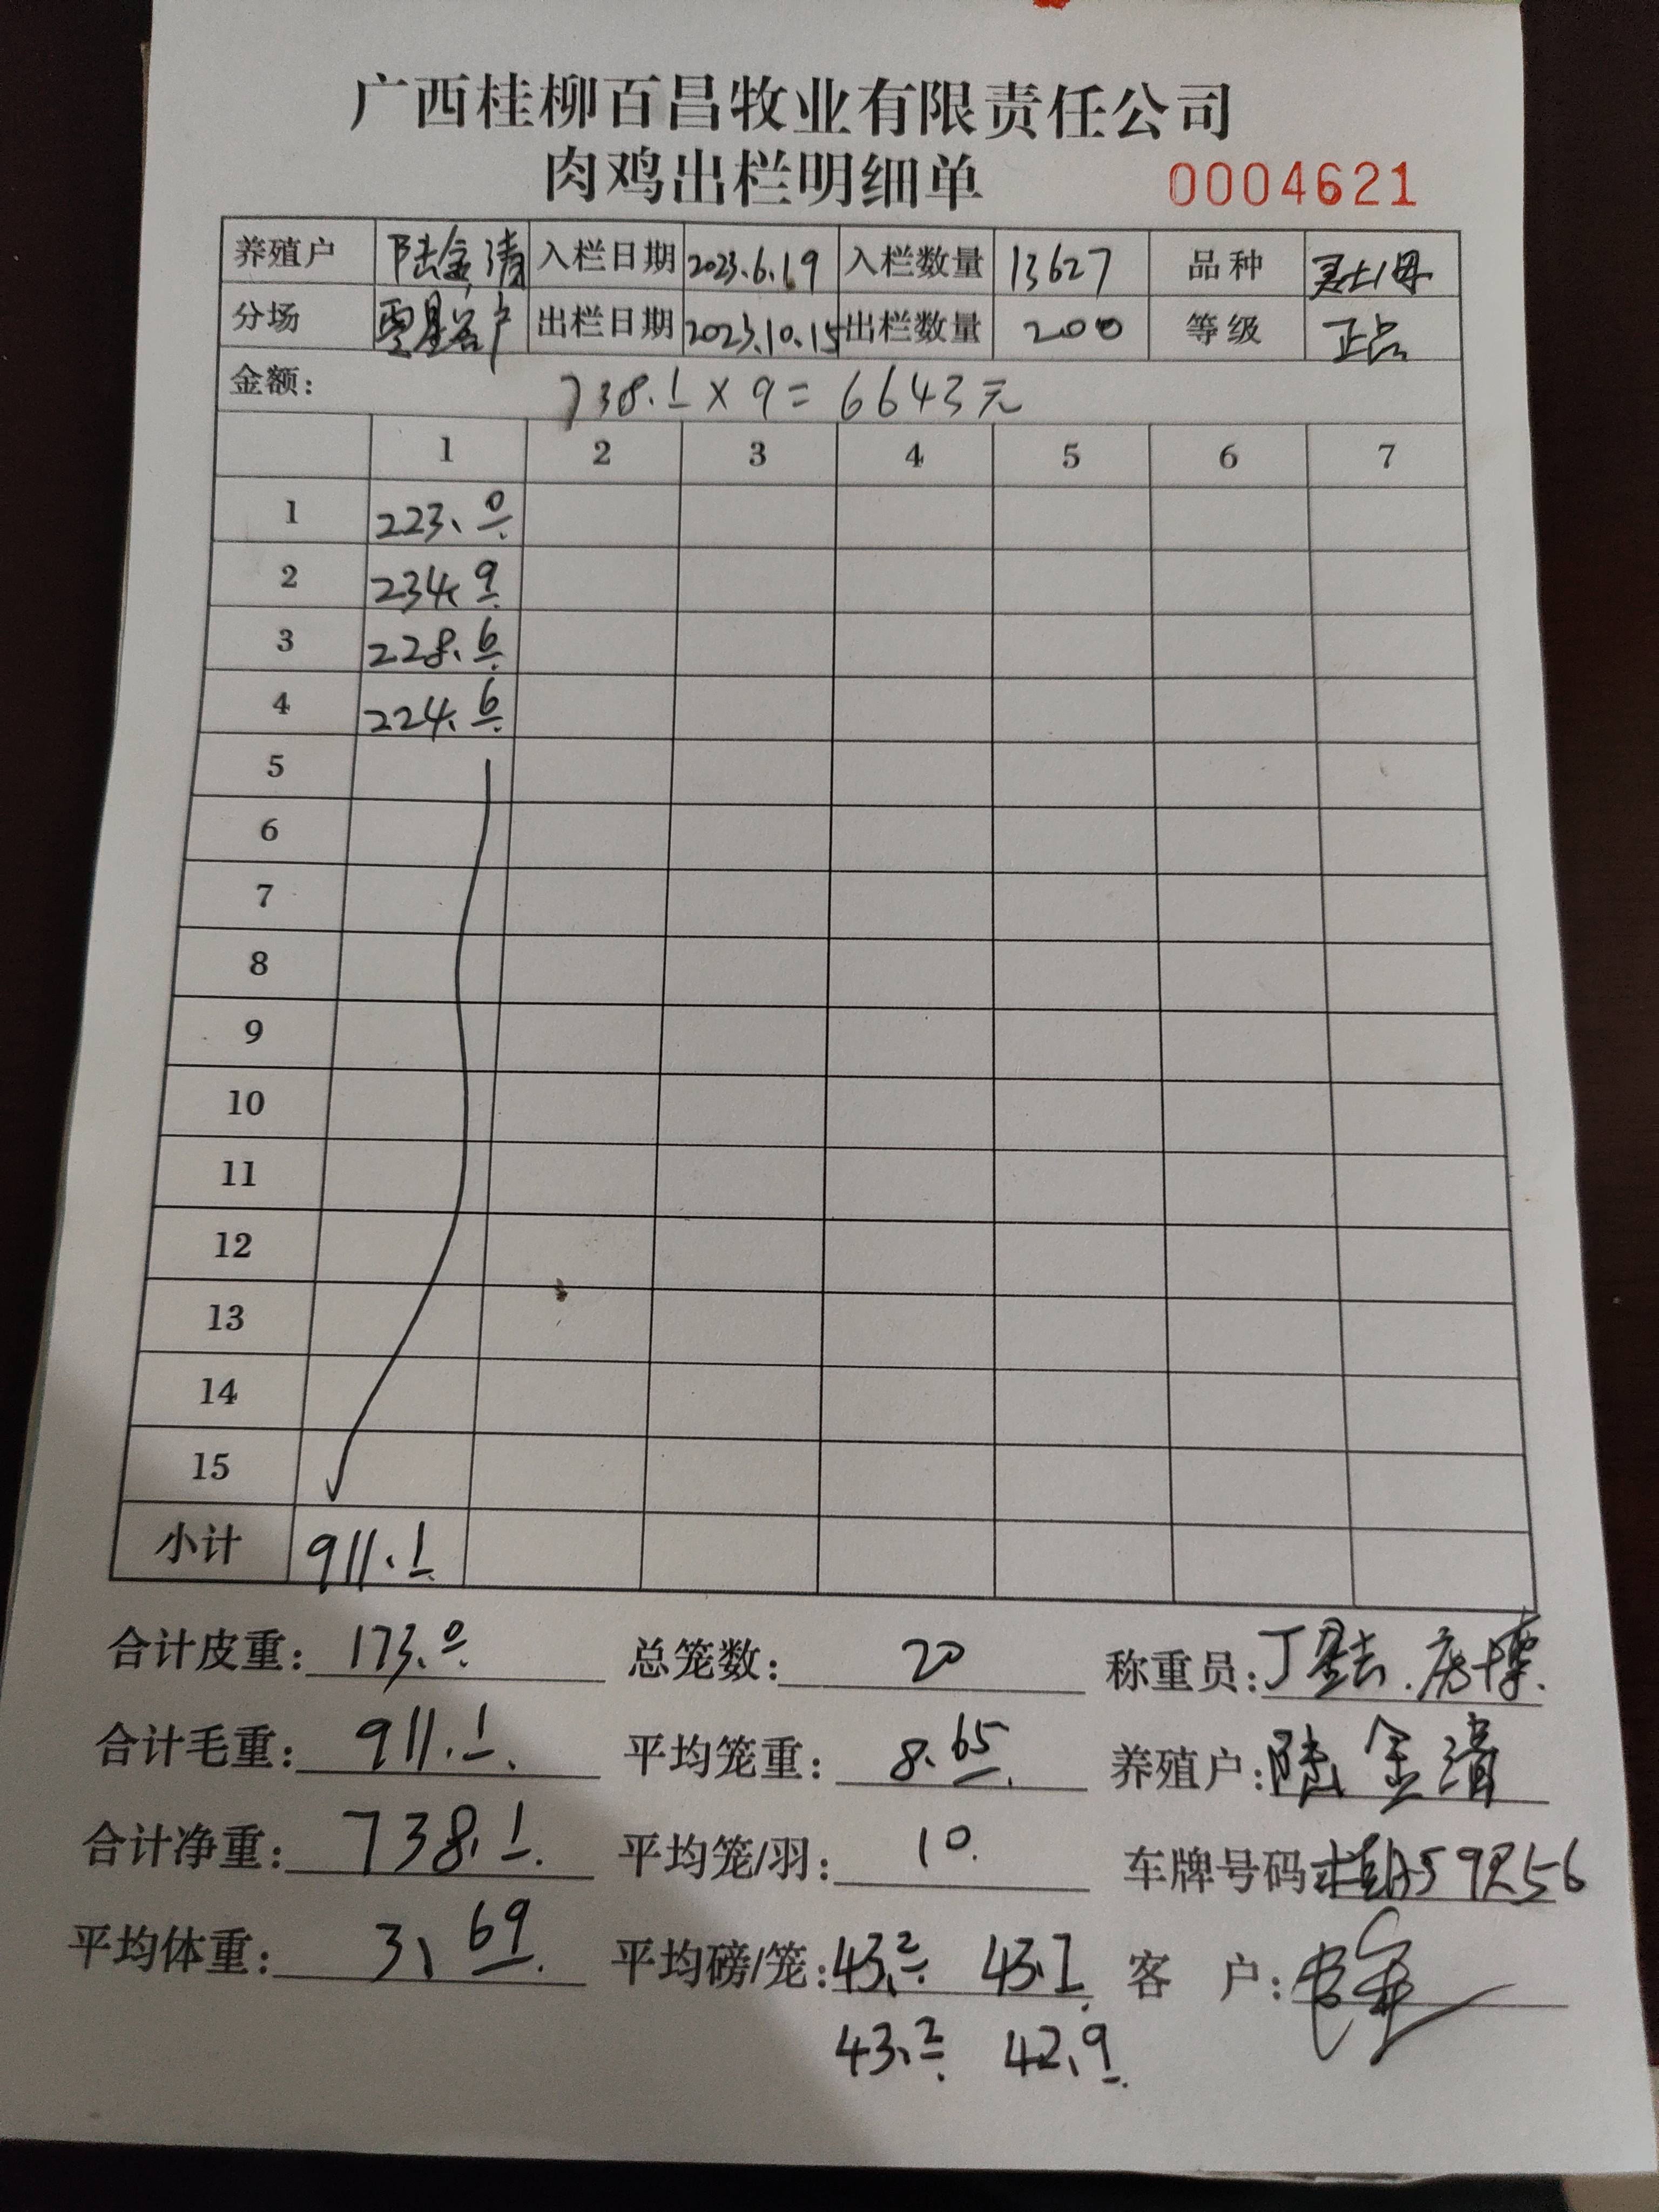 广西桂柳百昌牧业有限责任公司
肉鸡出栏明细单 0004621
养殖户 陆金清 入栏日期 2023.6.19 入栏数量 13627 品种
分场 出栏日期 2023.10.15 出栏数量 200 等级 正品
金额: 738.1×9=6643元
1 2 3 4 5 6 7
1 223.0
2 234.9
3 228.6
4 224.6
5
6
7
8
9
10
11
12
13
14
15
小计 911.1
合计皮重: 173.0 总笼数: 20 称重员:
合计毛重: 911.1 平均笼重: 8.65 养殖户: 陆金清
合计净重: 738.1 平均笼/羽: 10. 车牌号码
平均体重: 3.69 平均磅/笼: 43.2 43.1 客户:
43.2 42.9